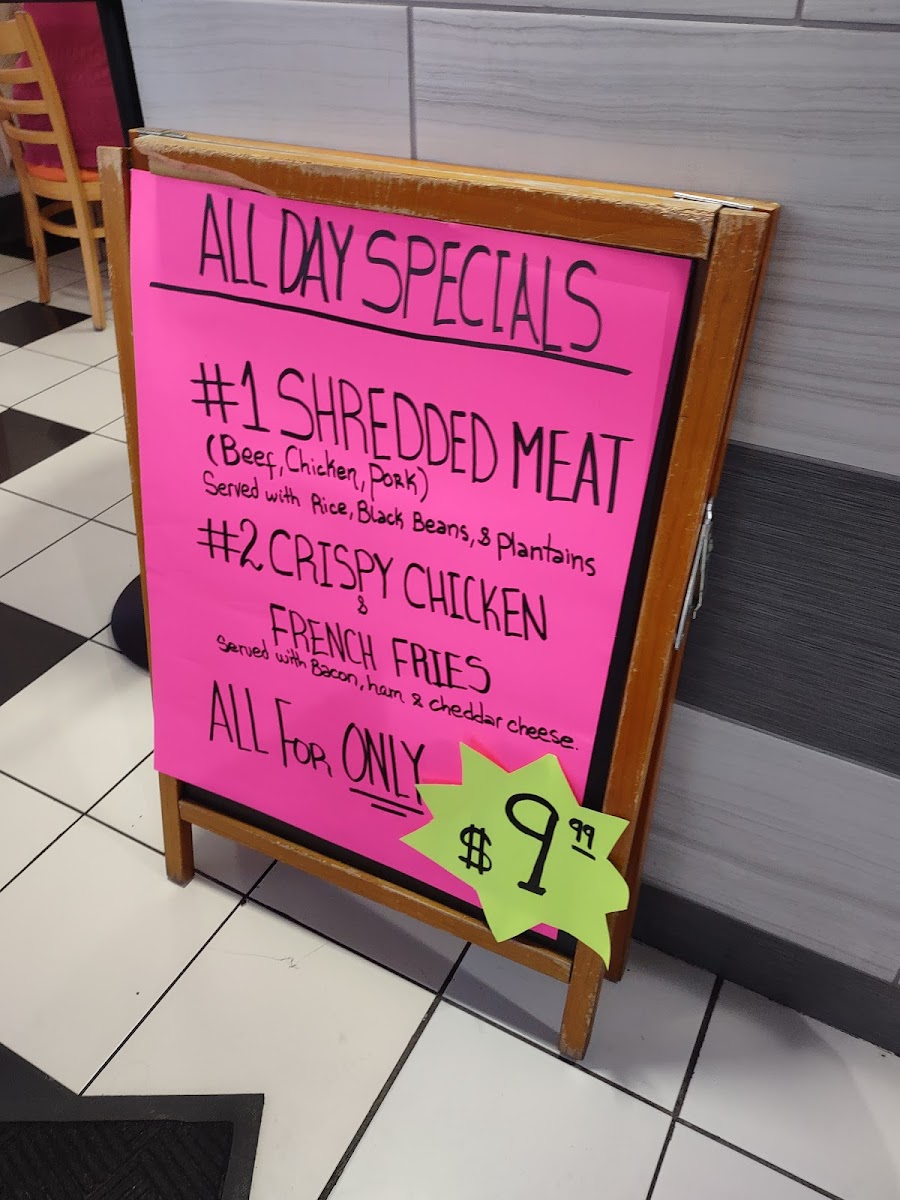 ALL DAY SPECIALS
#1 SHREDDED MEAT
(Beef, Chicken, Pork)
Served with Rice, Black Beans, & Plantains
#2 CRISPY CHICKEN
&
FRENCH FRIES
Served with Bacon, ham & cheddar cheese.
ALL FOR ONLY
$9.99